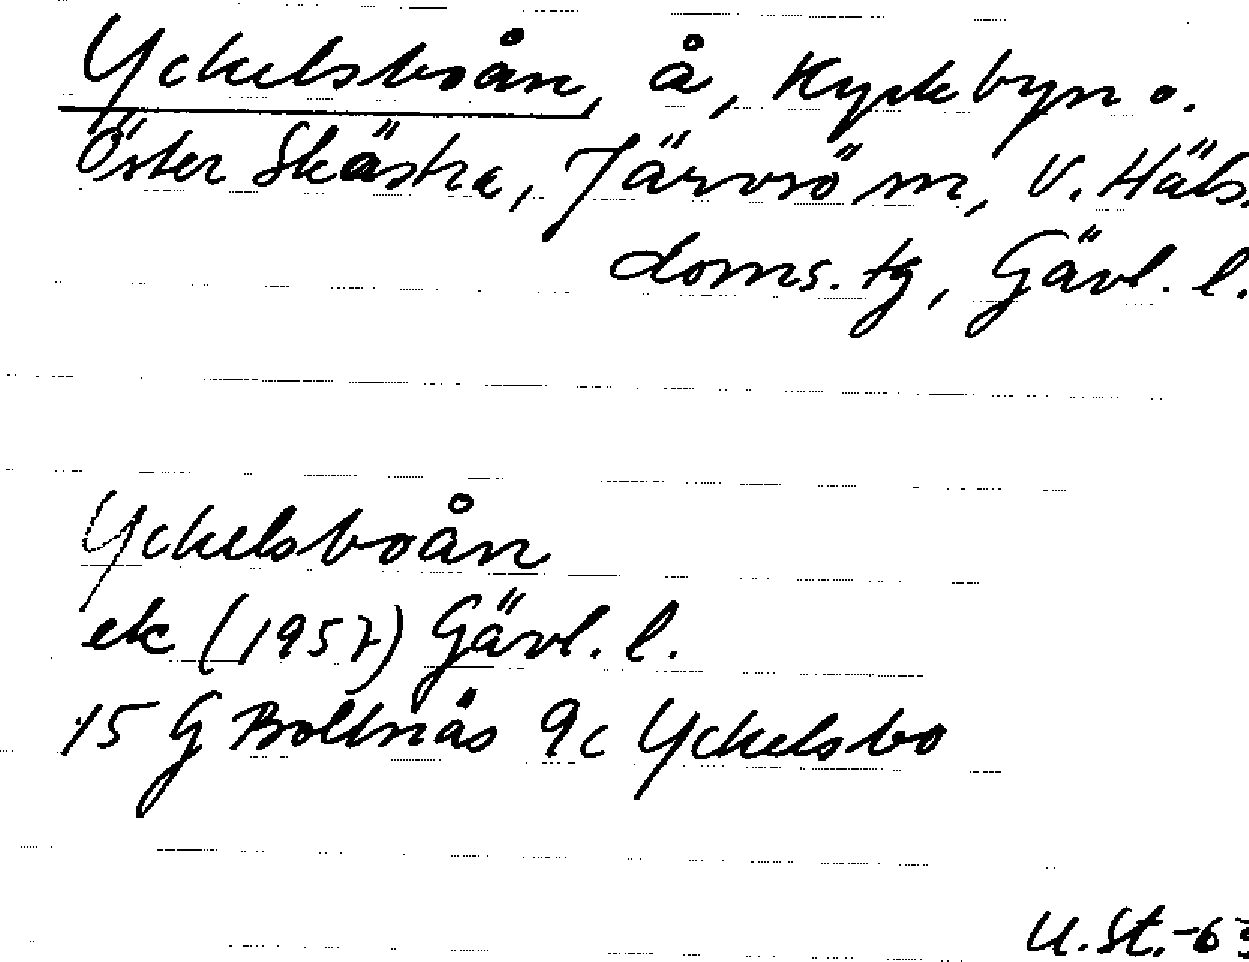 Yckelsboån, å, Kyrkbyn o.
Öster Skästra, Järvsö sn, V. Häls.
doms. tg, Gävl. l.
Yckelsboån
ek (1957) Gävl. l.
15 G Bollnäs 9c Yckelsbo
U.St.-63